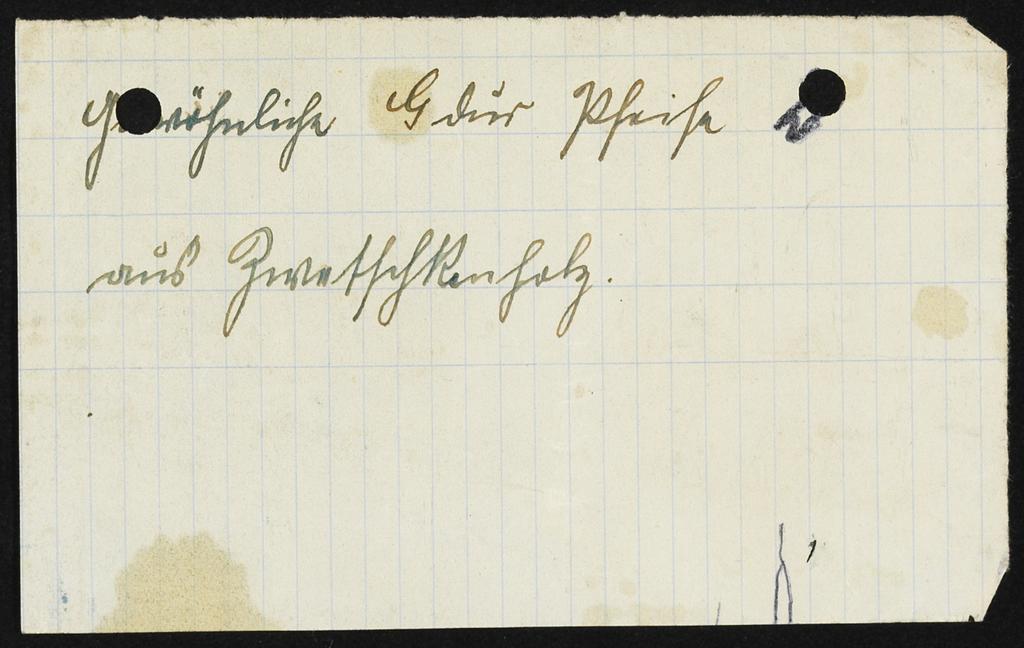 Gewöhnliche G dur Pfeife N
aus Zwetschkenholz.